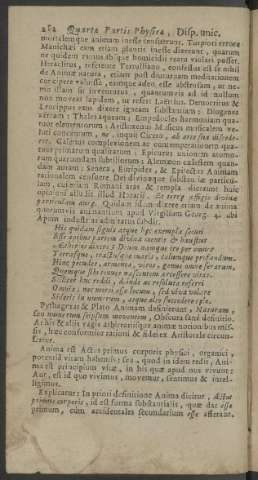 282 Quarta Partis Physicæ, Disp. unic.
mortalem que animam inesse censuerunt. Turpior error
Manichæi cum etiam plantis inesse dixerunt, quarum
ne quidem ramusculos absque homicidii reatu violari posse.
Heraclitus, referente Tertulliano, confessus est se nihil
de Animæ natura, etiam post diuturnam meditationem
concipere valuisse,
mo illam sit inventurus, quantumvis ad id nullum
non moveat lapidem, ut refert Laërtius. Democritus &
Leucippus eam dixere ignem subtilissimum: Diogenes
aërem: Thales aquam: Empedocles harmoniam qua-
tuor elementorum: Aristoxenus Musicus
luit concentum, ne, inquit Cicero, ab arte sua discede-
ret. Galenus complexionem ac contemperationem qua-
tuor primarum qualitatum: Epicurus unionem atomo-
rum quarumdam subtiliorum: Alcmæon cælestem quan-
dam auram: Seneca, Euripides, & Epictetus Animam
rationalem censuere Dei divinæque substantiæ particu-
lam,
opinioni
particulam auræ. Quidam
quorumvis animantium apud Virgilium Georg. 4. ubi
Apum industriæ
His quidam signis atque hæc exempla secuti
Esse apibus partem divinæ mentis & haustus
Æthereos dixere: Deum namque ire per omnes
Terrasque, tractusque maris, cælumque profundum.
Hinc pecudes, armenta, viros, genus omne ferarum,
Quemque sibi tenues nascentem arcessere vitas.
Scilicet huc reddi, deinde ac resoluta referri
Omnia: nec morti esse locum, sed viva volare
Sideris in numerum, atque alto succedere cælo.
Pythagoras & Plato Animam definierunt, Numerum
seu numerum seipsum moventem, Obscura sane definitio.
His & aliis vagis arbitrariisque animæ notionibus mis-
sis, hæc conformior rationi & fidei ex Aristotele circum-
fertur.
Anima est Actus primus corporis physici, organici,
potentiâ vitam habentis: seu, quod in idem redit, Ani-
ma est principium vitæ, in his quæ apud nos vivunt:
Aut, est id quo vivimus, movemur, sentimus & intel-
ligimus.
Explicatur: In priori definitione Anima dicitur, Actus
primus corporis, id est forma substantialis, quæ dat esse
primum, cum accidentales secundarium esse afferant.